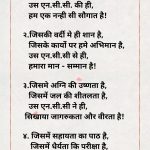 उस एन.सी.सी. की ही,
हम एक नन्ही सी सौगात है!
२.जिसकी वर्दी मे ही शान है,
जिसके कार्यो पर हमे अभिमान है,
उस एन.सी.सी से ही,
हमारा मान - सम्मान है!
३.जिसमे अग्नि की उष्णता है,
जिसमें जल की शीतलता है,
उस एन.सी.सी ने ही,
सिखाया जागरुकता और वीरता है!
४. जिसमें सहायता का पाठ है,
जिसमें धैर्यता कि परीक्षा है,